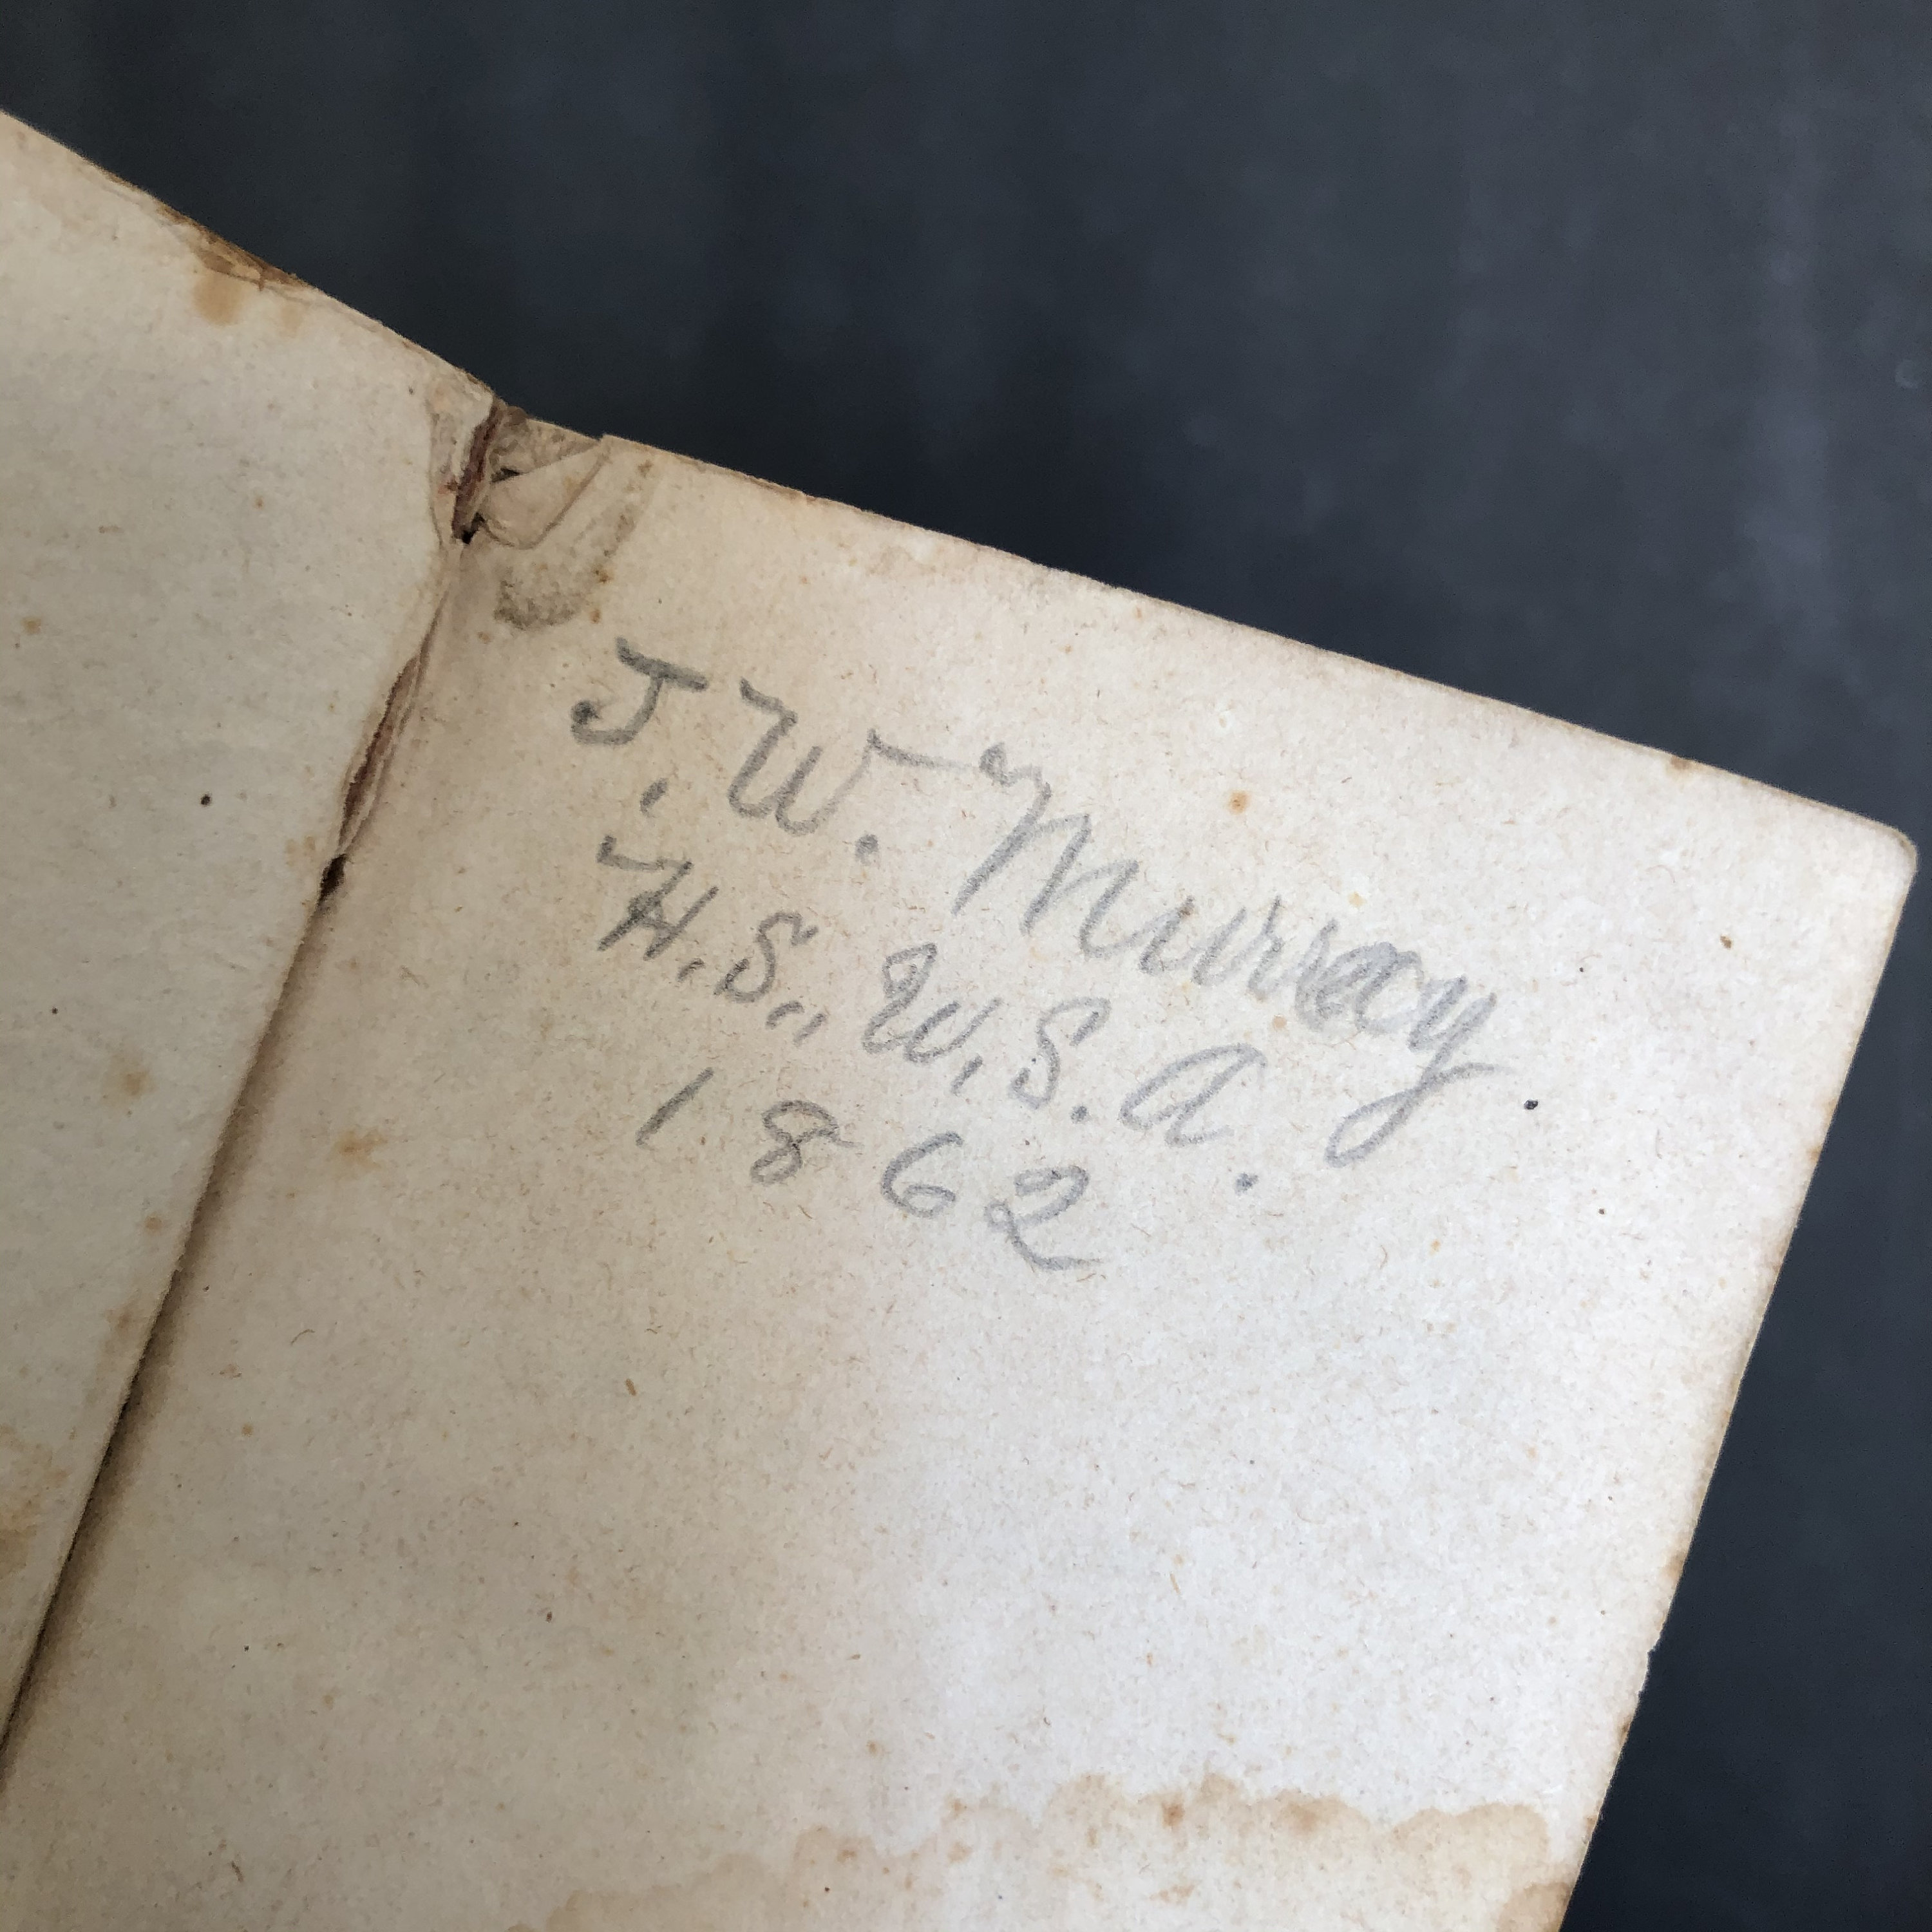 J. W. Murray
H. S., W. S. A.
1862